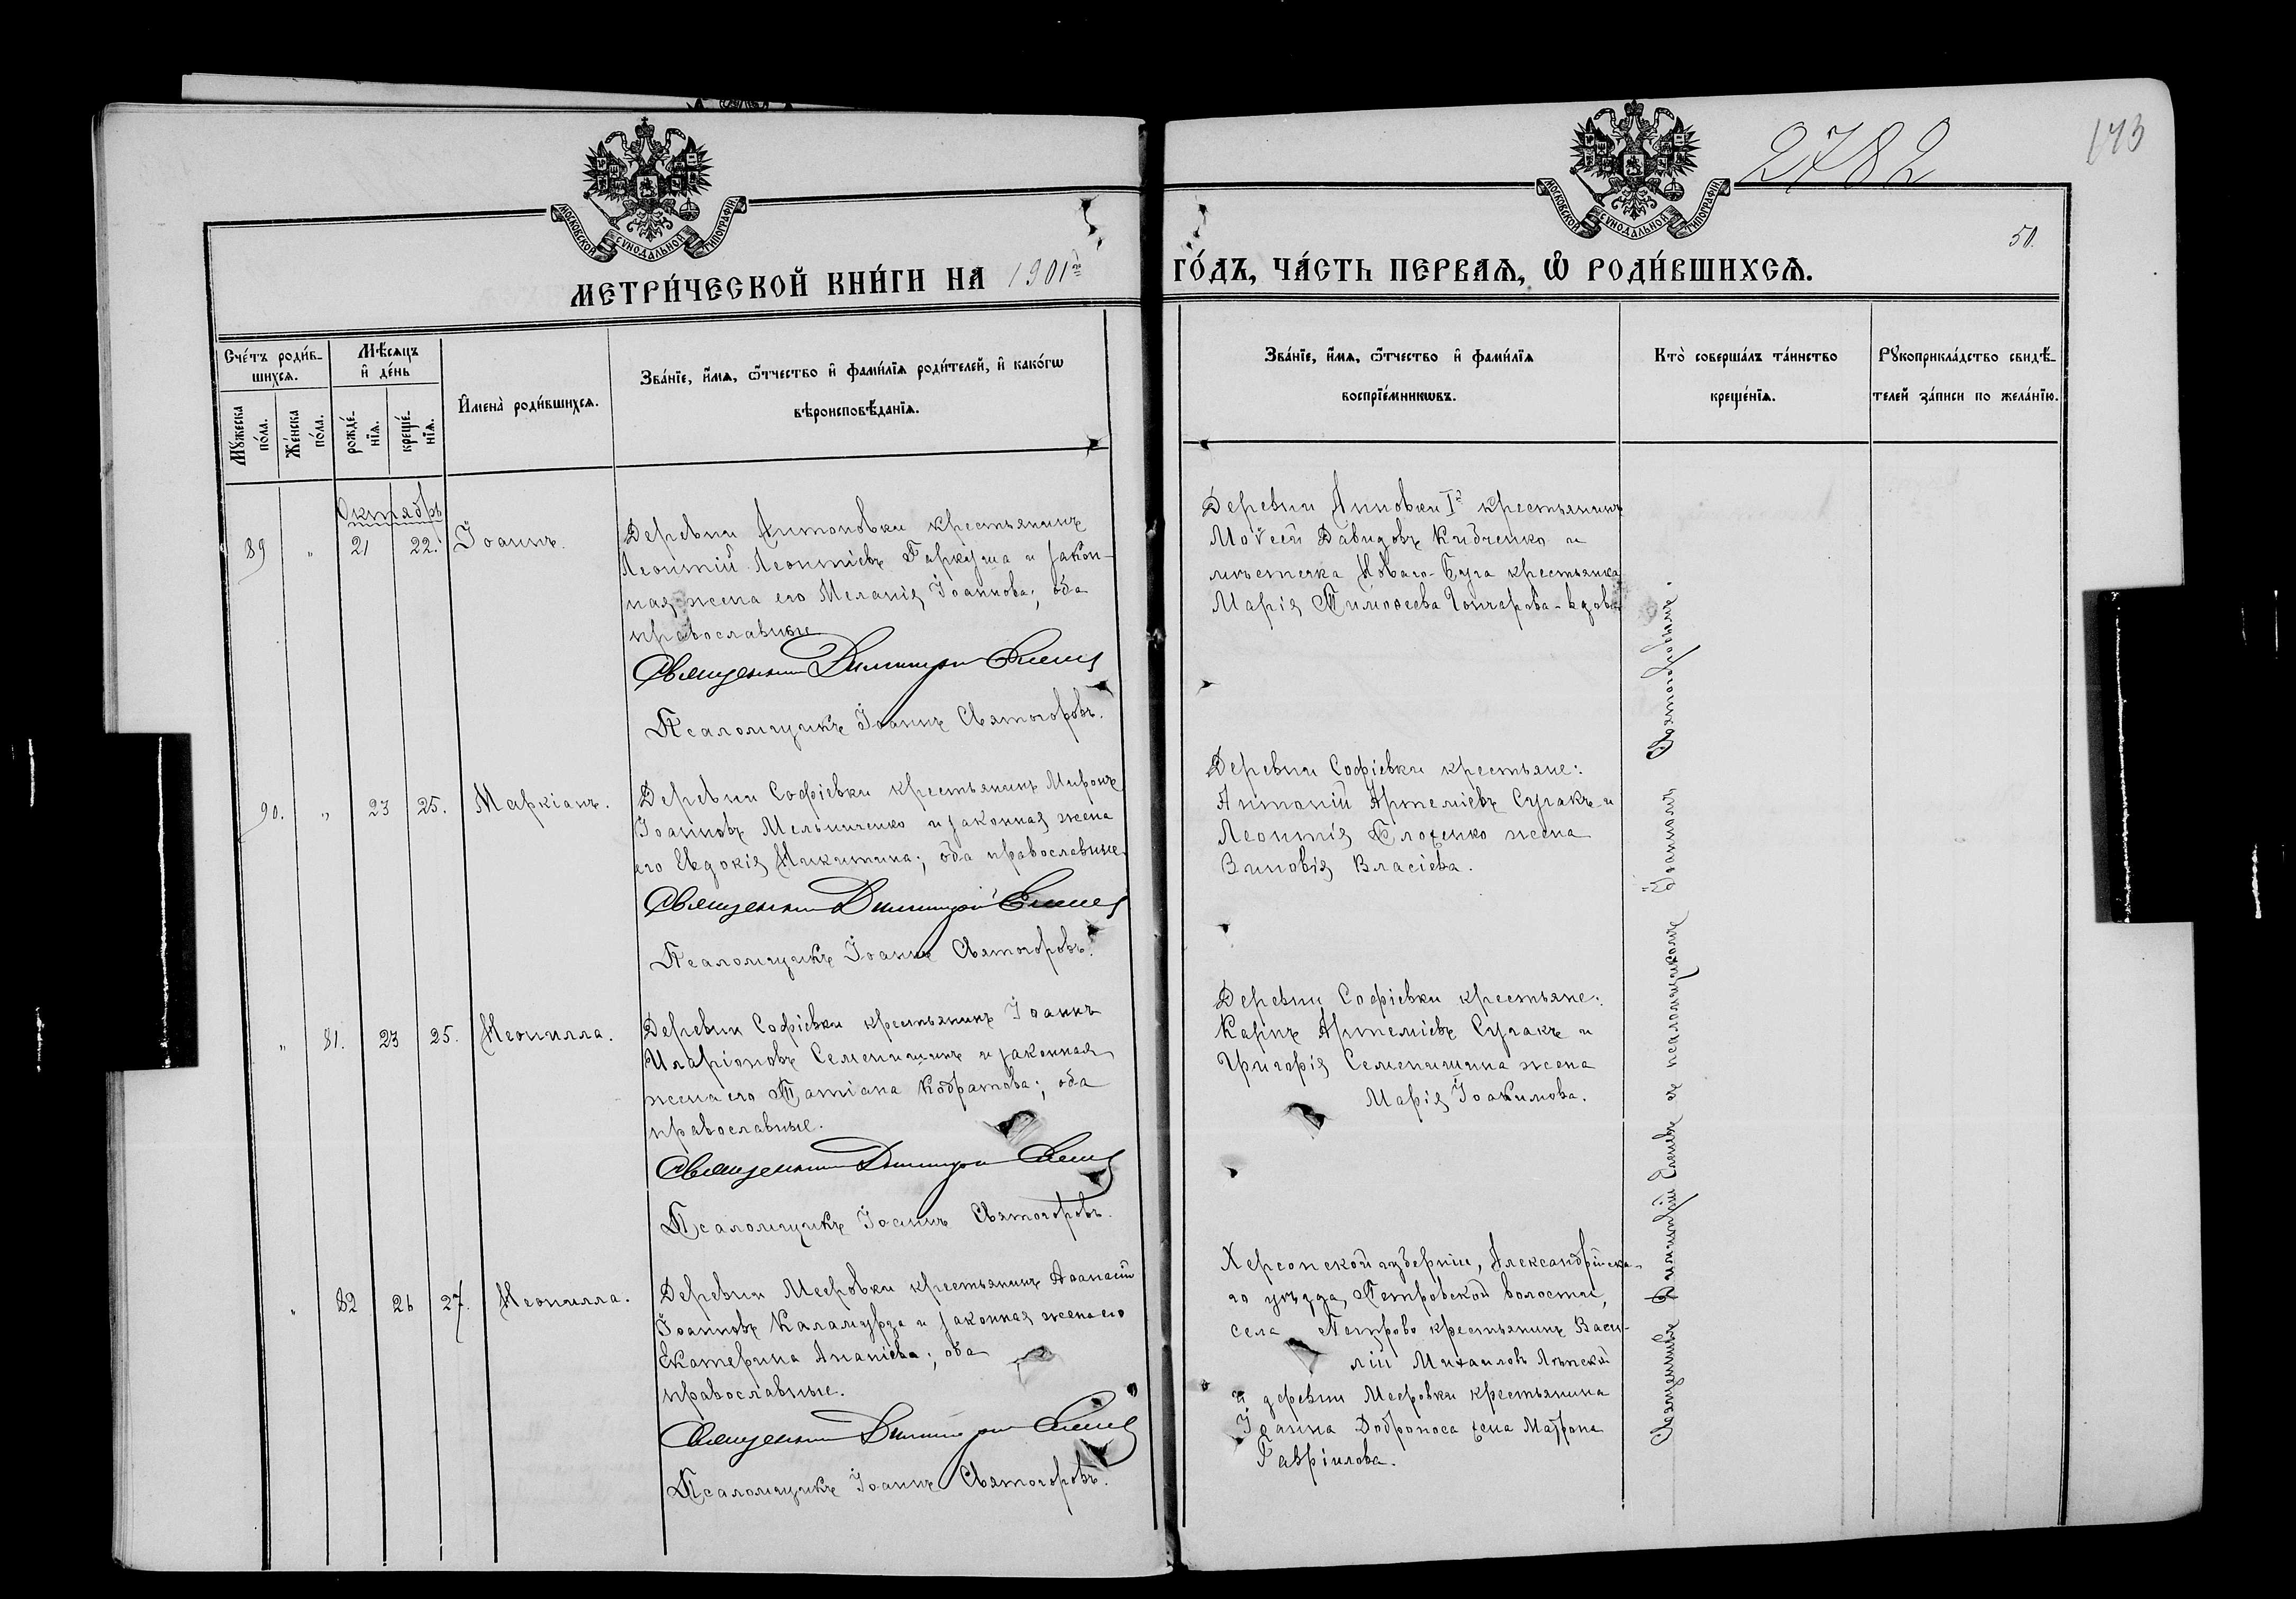 МОСКОВСКОЙ СѴНОДАЛЬНОЙ ТИПОГРАФІИ
МОСКОВСКОЙ СѴНОДАЛЬНОЙ ТИПОГРАФІИ
2782
173
50.
МЕТРИ́ЧЕСКОЙ КНИ́ГИ НА 1901й
ГО́ДЪ, ЧА́СТЬ ПЕРВАѦ, Ѡ҆ РОДИ́ВШИХСѦ.
Сче́тъ роди́в-
шихсѧ.
Мꙋ́жеска
по́ла.
Же́нска
по́ла.
Мѣ́сѧцъ
и҆ де́нь
рожде́-
нїѧ.
креще́-
нїѧ.
И҆мена̀ роди́вшихсѧ.
Зва́нїе, и҆́мѧ, ѻ҆́тчество и҆ фами́лїѧ роди́телей, и҆ како́гѡ
вѣроисповѣ́данїѧ.
Зва́нїе, и҆́мѧ, ѻ҆́тчество и҆ фами́лїѧ
воспрїе́мникѡвъ.
Кто̀ соверша́лъ та́инство
креще́нїѧ.
Рꙋкоприкла́дство свидѣ́-
телей за́писи по жела́нїю.
Октябрь
89 " 21 22. Іоаннъ.
Деревни Антоновки крестьянинъ
Леонтій Леонтіевъ Гаркуша и закон-
ная жена его Меланія Іоаннова; оба
православные
Священникъ Димитрій Еленевъ
Псаломщикъ Іоаннъ Святогоровъ.
Деревни Анновки Iй крестьянинъ
Моѵсей Давидовъ Кибченко и
мѣстечка Новаго-Буга крестьянка
Марія Тимоѳеева Гончарова-вдова
90. " 23 25. Маркіанъ.
Деревни Софіевки крестьянинъ Миронъ
Іоанновъ Мельниченко и законная жена
его Евдокія Никитина; оба православные.
Священникъ Димитрій Еленевъ
Псаломщикъ Іоаннъ Святогоровъ.
Деревни Софіевки крестьяне:
Антоній Артеміевъ Сугакъ и
Леонтія Блохенко жена
Зиновія Власіева.
" 81. 23 25. Неонилла.
Деревни Софіевки крестьянинъ Іоаннъ
Иларіоновъ Семенишинъ и законная
жена его Татіана Кодратова; оба
православные.
Священникъ Димитрій Еленевъ
Псаломщикъ Іоаннъ Святогоровъ.
Деревни Софіевки крестьяне:
Карпъ Артеміевъ Сугакъ и
Григорія Семенишина жена
Марія Іоакимова.
" 82 26 27. Неонилла.
Деревни Мееровки крестьянинъ Аѳанасій
Іоанновъ Каламурза и законная жена его
Екатерина Ананіева; оба
православные.
Священникъ Димитрій Еленевъ
Псаломщикъ Іоаннъ Святогоровъ.
Херсонской губерніи, Александрійска-
го уѣзда, Петровской волости,
села Петрово крестьянинъ Васи-
лій Михаиловъ Лѣпскій
и деревни Мееровки крестьянина
Іоанна Доброноса жена Матрона
Гавріилова.
Священникъ Димитрій Еленевъ съ псаломщикомъ Іоанномъ Святогоровымъ.